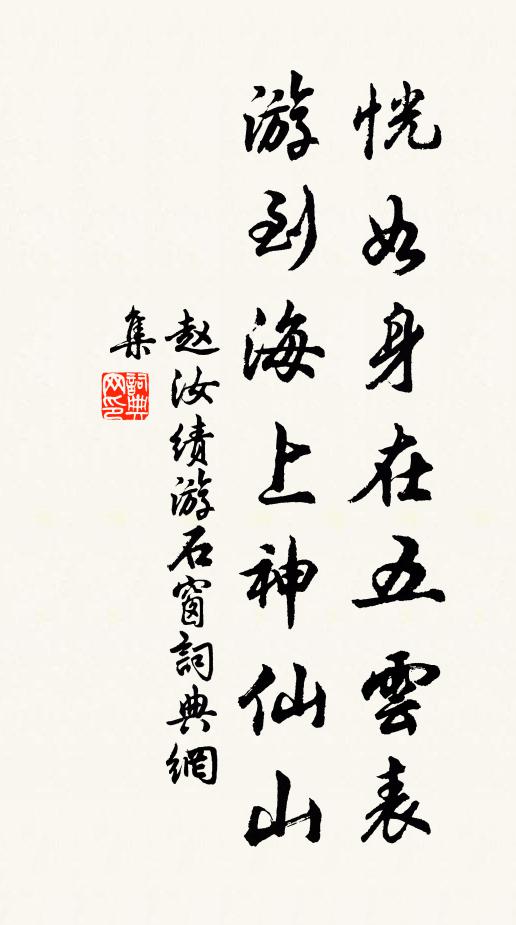 恍如身在五雲表
游到海上神仙山
赵汝績游石窗詞典網
集
詞典网印